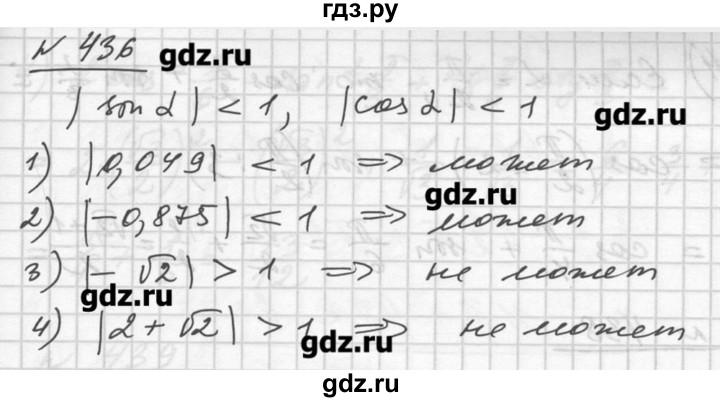 гдз.ру
№ 436 gdz.ru
|sin α| < 1, |cos α| < 1 gdz.ru
1) |0,049| < 1 => может
gdz.ru
2) |-0,875| < 1 => может
3) |-√2| > 1 => не может
gdz.ru
4) |2 + √2| > 1 => не может
gdz.ru
gdz.ru